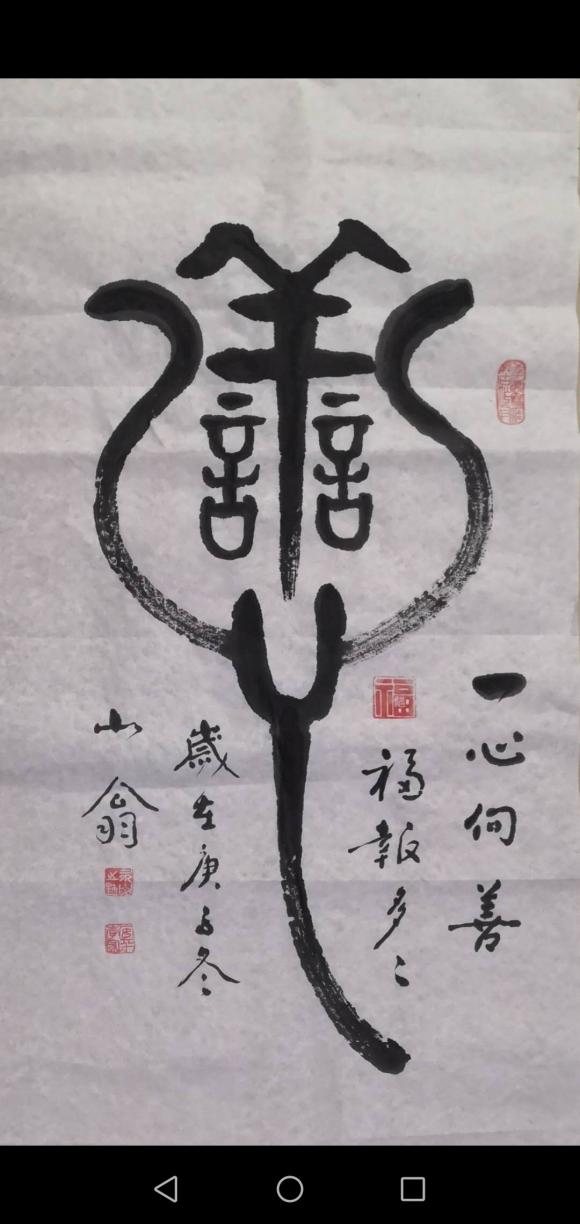 譱心
一心向善
福報多〻
歲在庚子冬
山翁
福